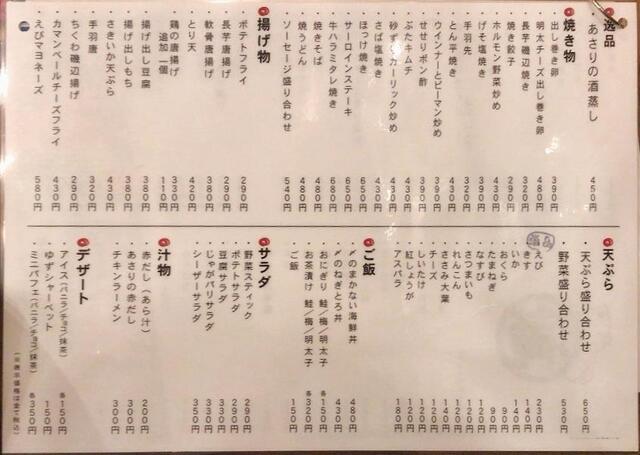 逸品
・あさりの酒蒸し 450円
焼き物
・出し巻き卵 390円
・明太チーズ出し巻き卵 480円
・長芋磯辺焼き 320円
・焼き餃子 290円
・ホルモン野菜炒め 430円
・げそ塩焼き 390円
・手羽先 320円
・とん平焼き 420円
・ウインナーとピーマン炒め 390円
・せせりポン酢 390円
・ぶたキムチ 430円
・砂ずりガーリック炒め 430円
・さば塩焼き 430円
・ほっけ焼き 650円
・サーロインステーキ 650円
・牛ハラミタレ焼き 680円
・焼きそば 480円
・焼うどん 480円
・ソーセージ盛り合わせ 540円
揚げ物
・ポテトフライ 290円
・長芋唐揚げ 290円
・軟骨唐揚げ 380円
・とり天 420円
・鶏の唐揚げ 330円
追加一個 110円
・揚げ出し豆腐 380円
・揚げ出しもち 380円
・さきいか天ぷら 430円
・手羽唐 320円
・ちくわ磯辺揚げ 290円
・カマンベールチーズフライ 430円
・えびマヨネーズ 580円
天ぷら
・天ぷら盛り合わせ 650円
・野菜盛り合わせ 530円
・えび 230円
・きす 140円
・いか 140円
・おくら 100円
・たまねぎ 90円
・なすび 90円
・さつまいも 110円
・れんこん 120円
・ささみ大葉 140円
・チーズ 120円
・しいたけ 110円
・紅しょうが 120円
・アスパラ 180円
ご飯
・〆のまかない海鮮丼 480円
・〆のねぎとろ丼 430円
・おにぎり 鮭/梅/明太子 各150円
・お茶漬け 鮭/梅/明太子 各320円
・ご飯 150円
サラダ
・野菜スティック 290円
・ポテトサラダ 290円
・豆腐サラダ 330円
・じゃがパリサラダ 350円
・シーザーサラダ 350円
汁物
・赤だし(あら汁) 200円
・あさりの赤だし 300円
・チキンラーメン 300円
デザート
・アイス(バニラ/チョコ/抹茶) 各150円
・ゆずシャーベット 150円
・ミニパフェ(バニラ/チョコ/抹茶) 各350円
(※表示価格は全て税込)